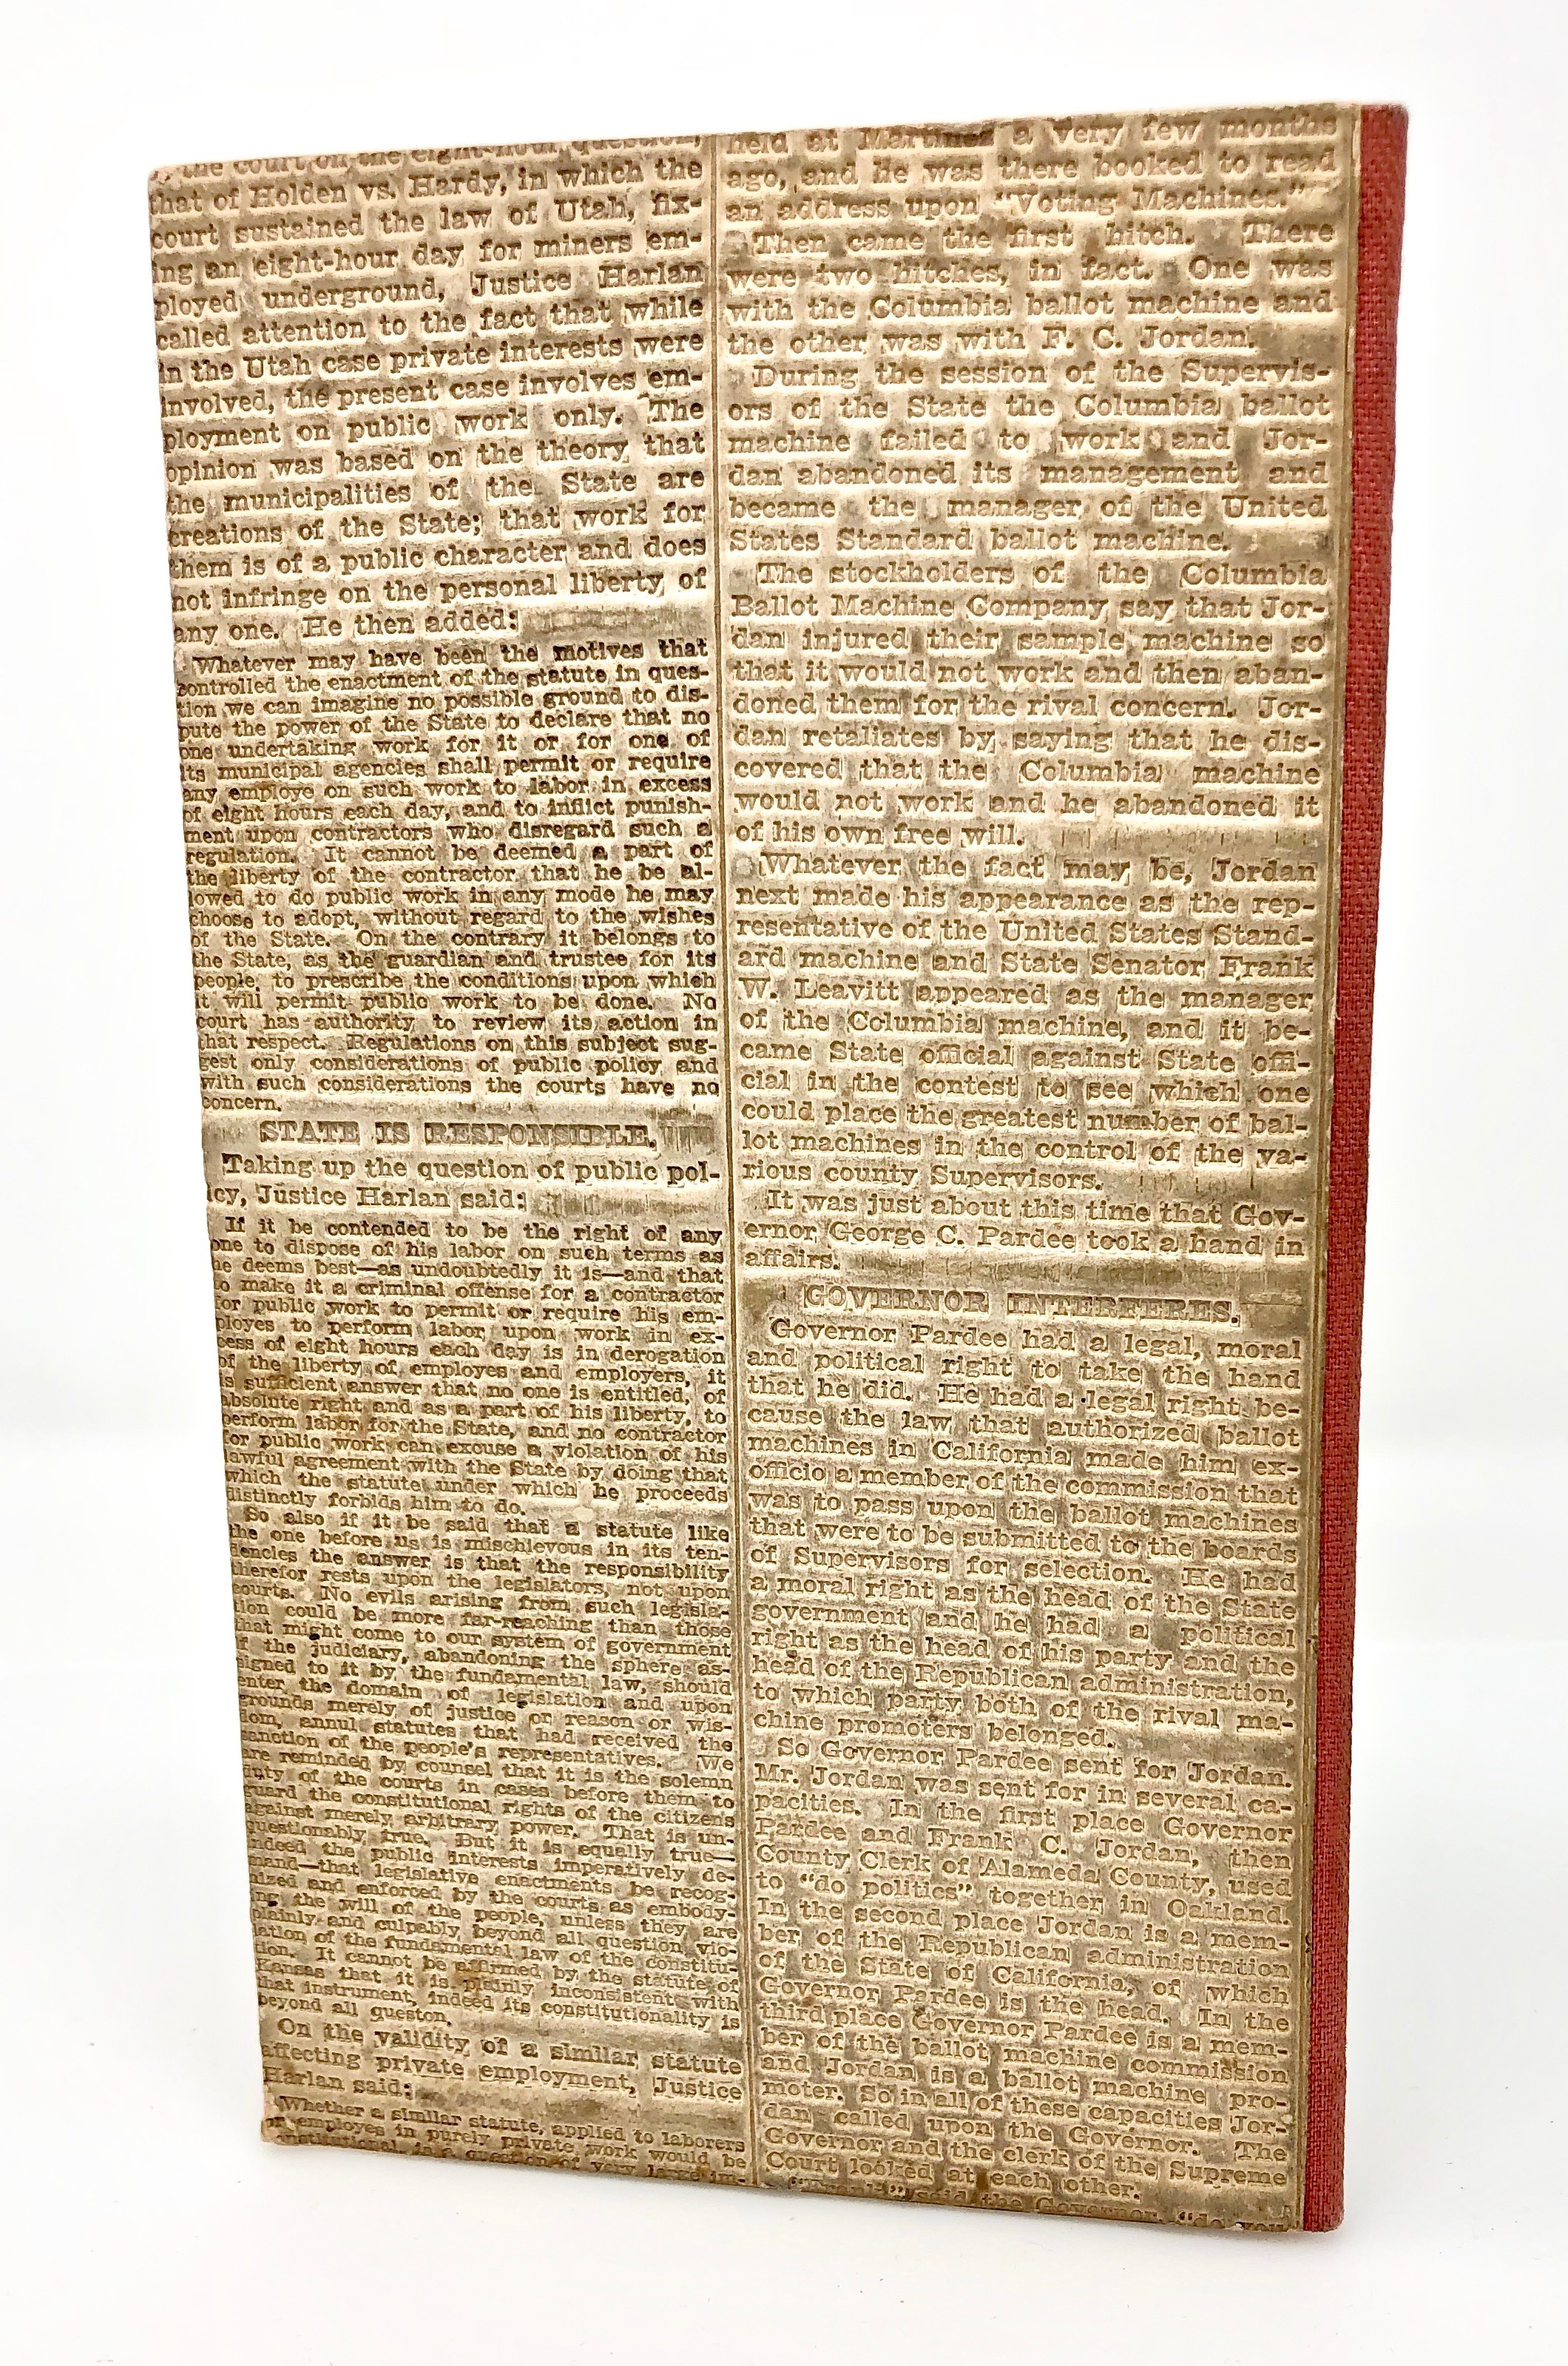 the court on the eight-hour question,
that of Holden vs. Hardy, in which the
court sustained the law of Utah, fix-
ing an eight-hour day for miners em-
ployed underground, Justice Harlan
called attention to the fact that while
in the Utah case private interests were
involved, the present case involves em-
ployment on public work only. The
opinion was based on the theory that
the municipalities of the State are
creations of the State; that work for
them is of a public character and does
not infringe on the personal liberty of
any one. He then added:
Whatever may have been the motives that
controlled the enactment of the statute in ques-
tion we can imagine no possible ground to dis-
pute the power of the State to declare that no
one undertaking work for it or for one of
its municipal agencies shall permit or require
any employe on such work to labor in excess
of eight hours each day, and to inflict punish-
ment upon contractors who disregard such a
regulation. It cannot be deemed a part of
the liberty of the contractor that he be al-
lowed to do public work in any mode he may
choose to adopt, without regard to the wishes
of the State. On the contrary it belongs to
the State, as the guardian and trustee for its
people, to prescribe the conditions upon which
it will permit public work to be done. No
court has authority to review its action in
that respect. Regulations on this subject sug-
gest only considerations of public policy and
with such considerations the courts have no
concern.
STATE IS RESPONSIBLE.
Taking up the question of public pol-
icy, Justice Harlan said:
If it be contended to be the right of any
one to dispose of his labor on such terms as
he deems best—as undoubtedly it is—and that
to make it a criminal offense for a contractor
for public work to permit or require his em-
ployes to perform labor upon work in ex-
cess of eight hours each day is in derogation
of the liberty of employes and employers, it
is sufficient answer that no one is entitled, of
absolute right and as a part of his liberty, to
perform labor for the State, and no contractor
for public work can excuse a violation of his
lawful agreement with the State by doing that
which the statute under which he proceeds
distinctly forbids him to do.
So also if it be said that a statute like
the one before us is mischievous in its ten-
dencies the answer is that the responsibility
therefor rests upon the legislators, not upon
courts. No evils arising from such legisla-
tion could be more far-reaching than those
that might come to our system of government
if the judiciary, abandoning the sphere as-
signed to it by the fundamental law, should
enter the domain of legislation and upon
grounds merely of justice or reason or wis-
dom, annul statutes that had received the
sanction of the people's representatives. We
are reminded by counsel that it is the solemn
duty of the courts in cases before them to
guard the constitutional rights of the citizens
against merely arbitrary power. That is un-
questionably true. But it is equally true—
indeed the public interests imperatively de-
mand—that legislative enactments be recog-
nized and enforced by the courts as embody-
ing the will of the people, unless they are
plainly and culpably beyond all question vio-
lation of the fundamental law of the constitu-
tion. It cannot be affirmed by the statute of
Kansas that it is plainly inconsistent with
that instrument, indeed its constitutionality is
beyond all queston.
On the validity of a similar statute
affecting private employment, Justice
Harlan said:
Whether a similar statute, applied to laborers
or employes in purely private work would be
constitutional, is a question of very large im-
held at a very few months
ago, and he was there booked to read
an address upon "Voting Machines."
Then came the first hitch. There
were two hitches, in fact. One was
with the Columbia ballot machine and
the other was with F. C. Jordan.
During the session of the Supervis-
ors of the State the Columbia ballot
machine failed to work and Jor-
dan abandoned its management and
became the manager of the United
States Standard ballot machine.
The stockholders of the Columbia
Ballot Machine Company say that Jor-
dan injured their sample machine so
that it would not work and then aban-
doned them for the rival concern. Jor-
dan retaliates by saying that he dis-
covered that the Columbia machine
would not work and he abandoned it
of his own free will.
Whatever the fact may be, Jordan
next made his appearance as the rep-
resentative of the United States Stand-
ard machine and State Senator Frank
W. Leavitt appeared as the manager
of the Columbia machine, and it be-
came State official against State offi-
cial in the contest to see which one
could place the greatest number of bal-
lot machines in the control of the va-
rious county Supervisors.
It was just about this time that Gov-
ernor George C. Pardee took a hand in
affairs.
GOVERNOR INTERFERES.
Governor Pardee had a legal, moral
and political right to take the hand
that he did. He had a legal right be-
cause the law that authorized ballot
machines in California made him ex-
officio a member of the commission that
was to pass upon the ballot machines
that were to be submitted to the boards
of Supervisors for selection. He had
a moral right as the head of the State
government and he had a political
right as the head of his party and the
head of the Republican administration,
to which party both of the rival ma-
chine promoters belonged.
So Governor Pardee sent for Jordan.
Mr. Jordan was sent for in several ca-
pacities. In the first place Governor
Pardee and Frank C. Jordan, then
County Clerk of Alameda County, used
to "do politics" together in Oakland.
In the second place Jordan is a mem-
ber of the Republican administration
of the State of California, of which
Governor Pardee is the head. In the
third place Governor Pardee is a mem-
ber of the ballot machine commission
and Jordan is a ballot machine pro-
moter. So in all of these capacities Jor-
dan called upon the Governor. The
Governor and the clerk of the Supreme
Court looked at each other.
said the Governor, "do you